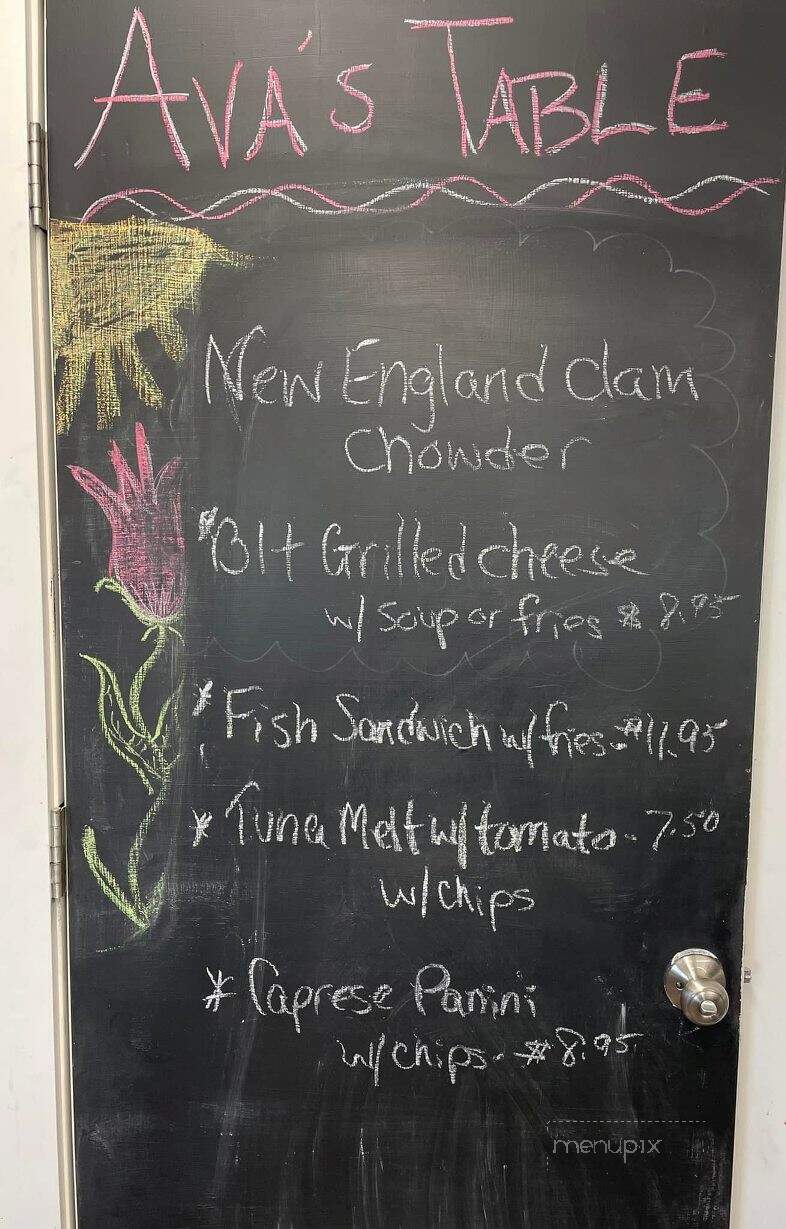 AVA'S TABLE
New England Clam
Chowder
*Blt Grilled cheese
w/ soup or fries $ 8.95
* Fish Sandwich w/fries-$11.95
* Tuna Melt w/tomato - 7.50
w/chips
* Caprese Panini
w/chips - $8.95
menupix